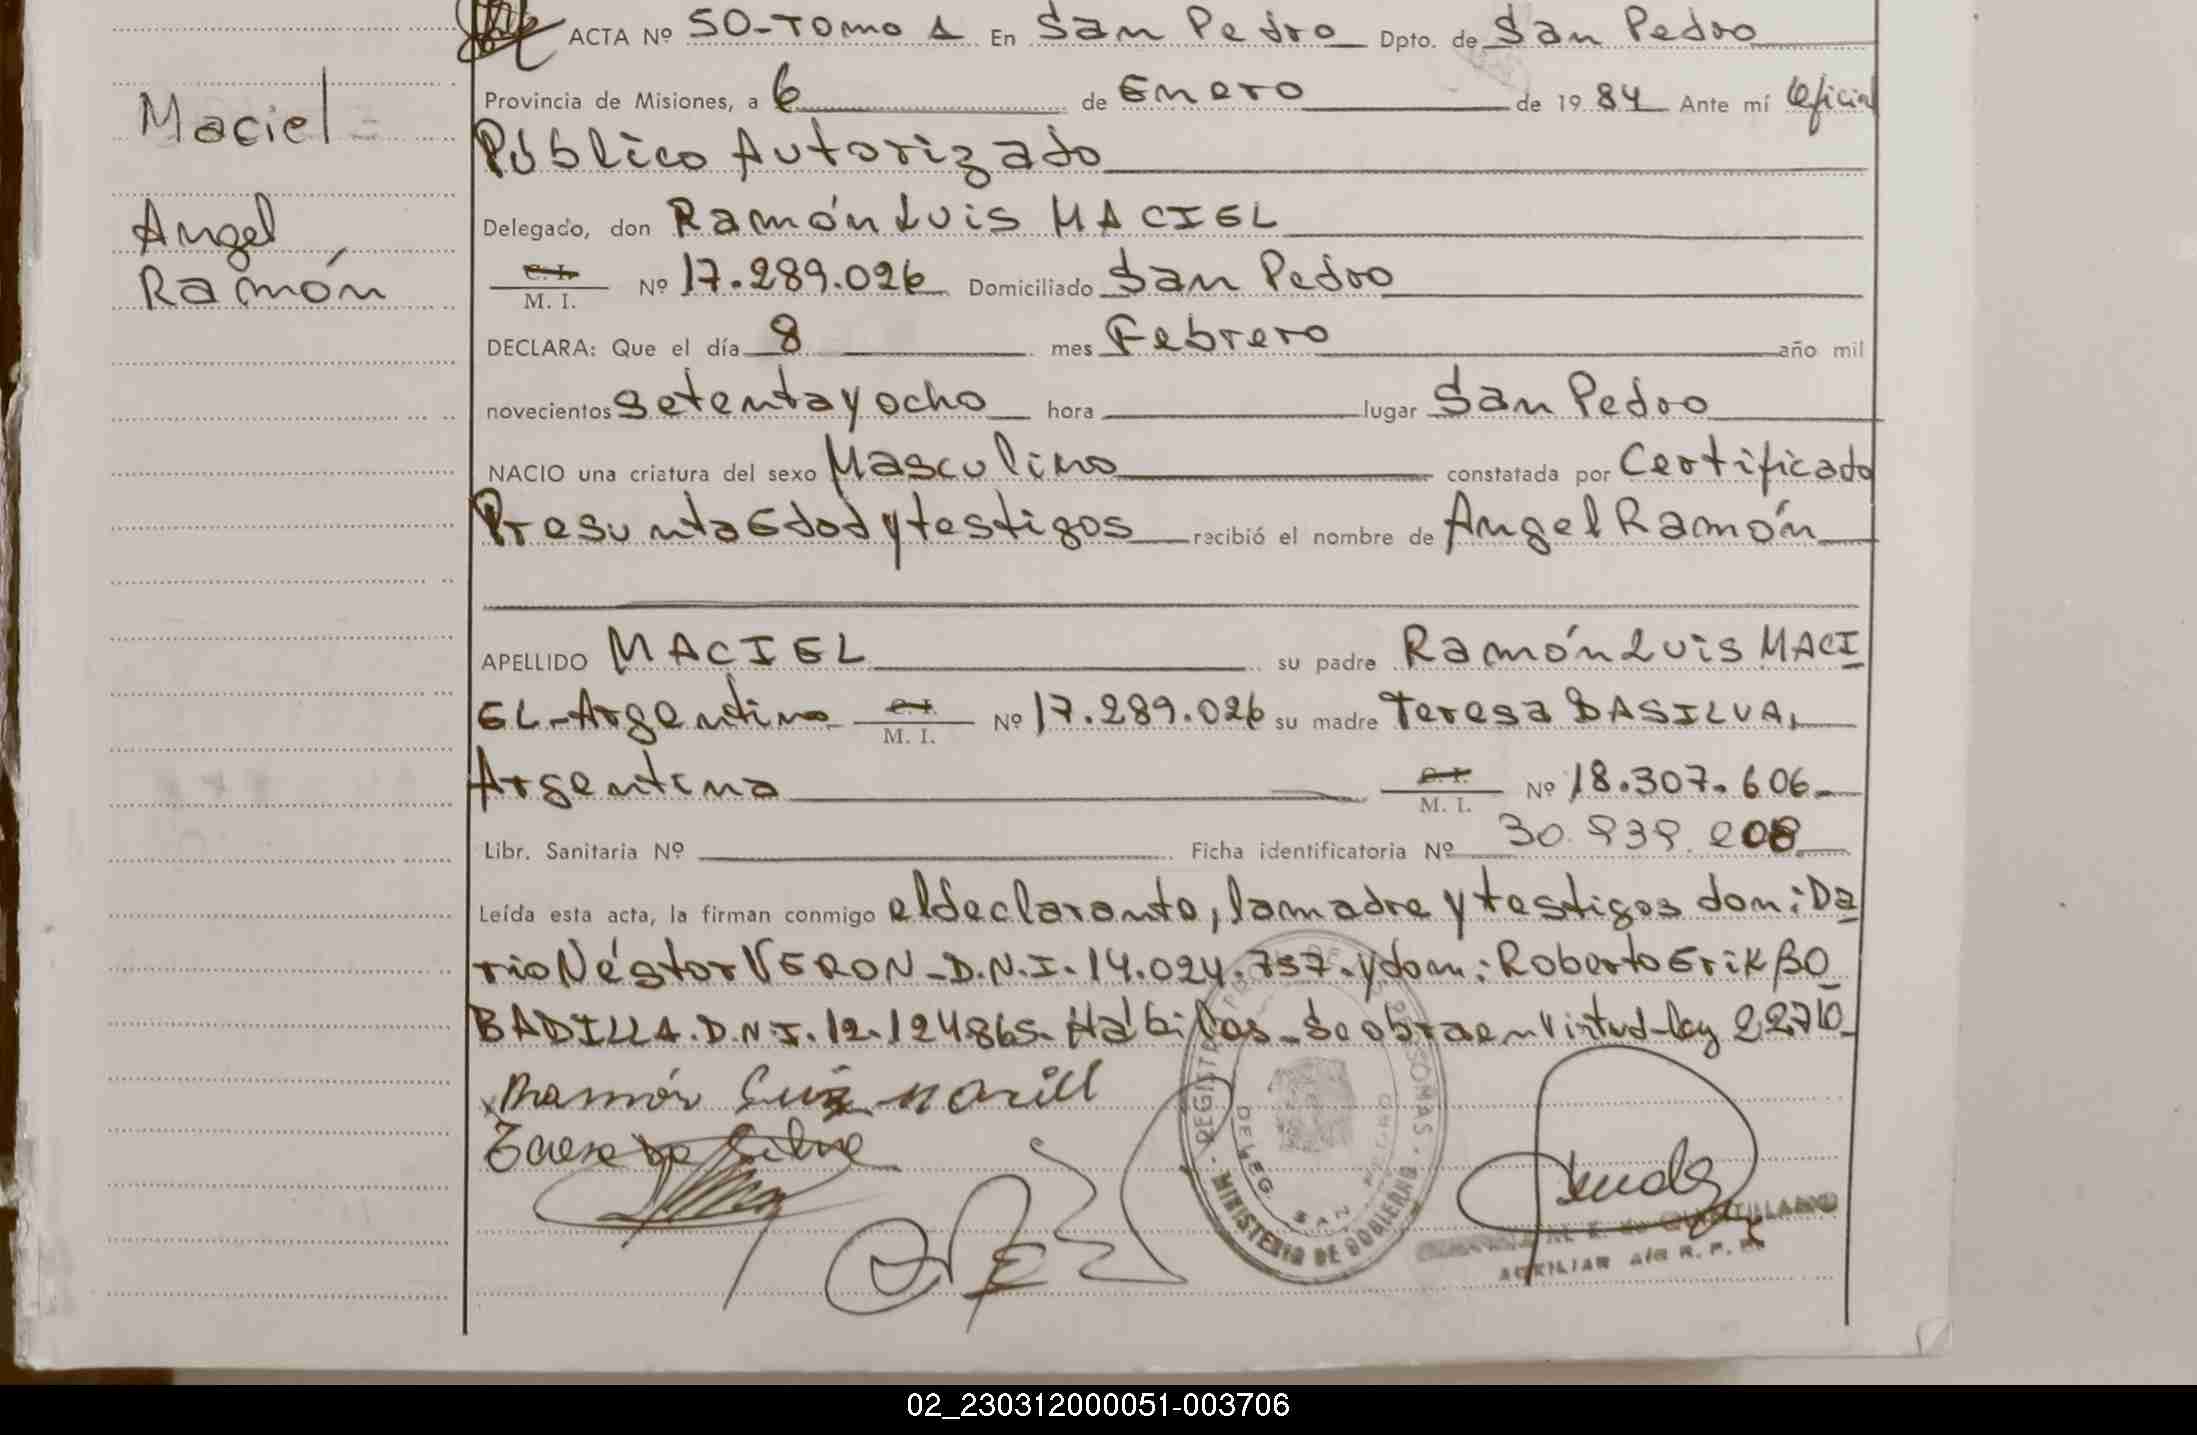 ACTA Nº 50-Tomo 1 En San Pedro Dpto. de San Pedro
Provincia de Misiones, a 6 de Enero de 1984 Ante mí Oficial
Público Autorizado
Maciel
Angel
Ramón
Delegado, don Ramón Luis MACIEL
C. I.
M. I. Nº 17.289.026 Domiciliado San Pedro
DECLARA: Que el día 8 mes Febrero año mil
novecientos setenta y ocho hora lugar San Pedro
NACIO una criatura del sexo Masculino constatada por Certificado
Presunta Edad y testigos recibió el nombre de Angel Ramón
APELLIDO MACIEL su padre Ramón Luis MACI
EL-Argentino C. I. M. I. Nº 17.289.026 su madre Teresa DASILVA,
Argentina C. I. M. I. Nº 18.307.606
Libr. Sanitaria Nº Ficha identificatoria Nº 30.939.208
Leída esta acta, la firman conmigo el declarante, la madre y testigos don: Da
rio Néstor VERON-D.N.I. 14.024.757. y don: Roberto Erik BO
BADILLA. D.N.I. 12.124865. Hábiles. Se obra en virtud-ley 22710
Ramón Luis
REGISTRO DE LAS PERSONAS
DELEG. SAN PEDRO
MINISTERIO DE GOBIERNO
AUXILIAR A/C R. P.
02_230312000051-003706